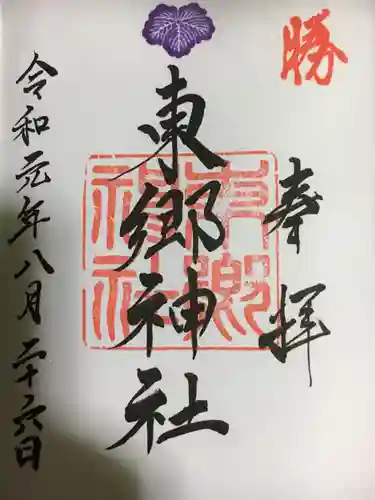 勝
奉拝
東郷神社
東郷神社
令和元年八月二十六日